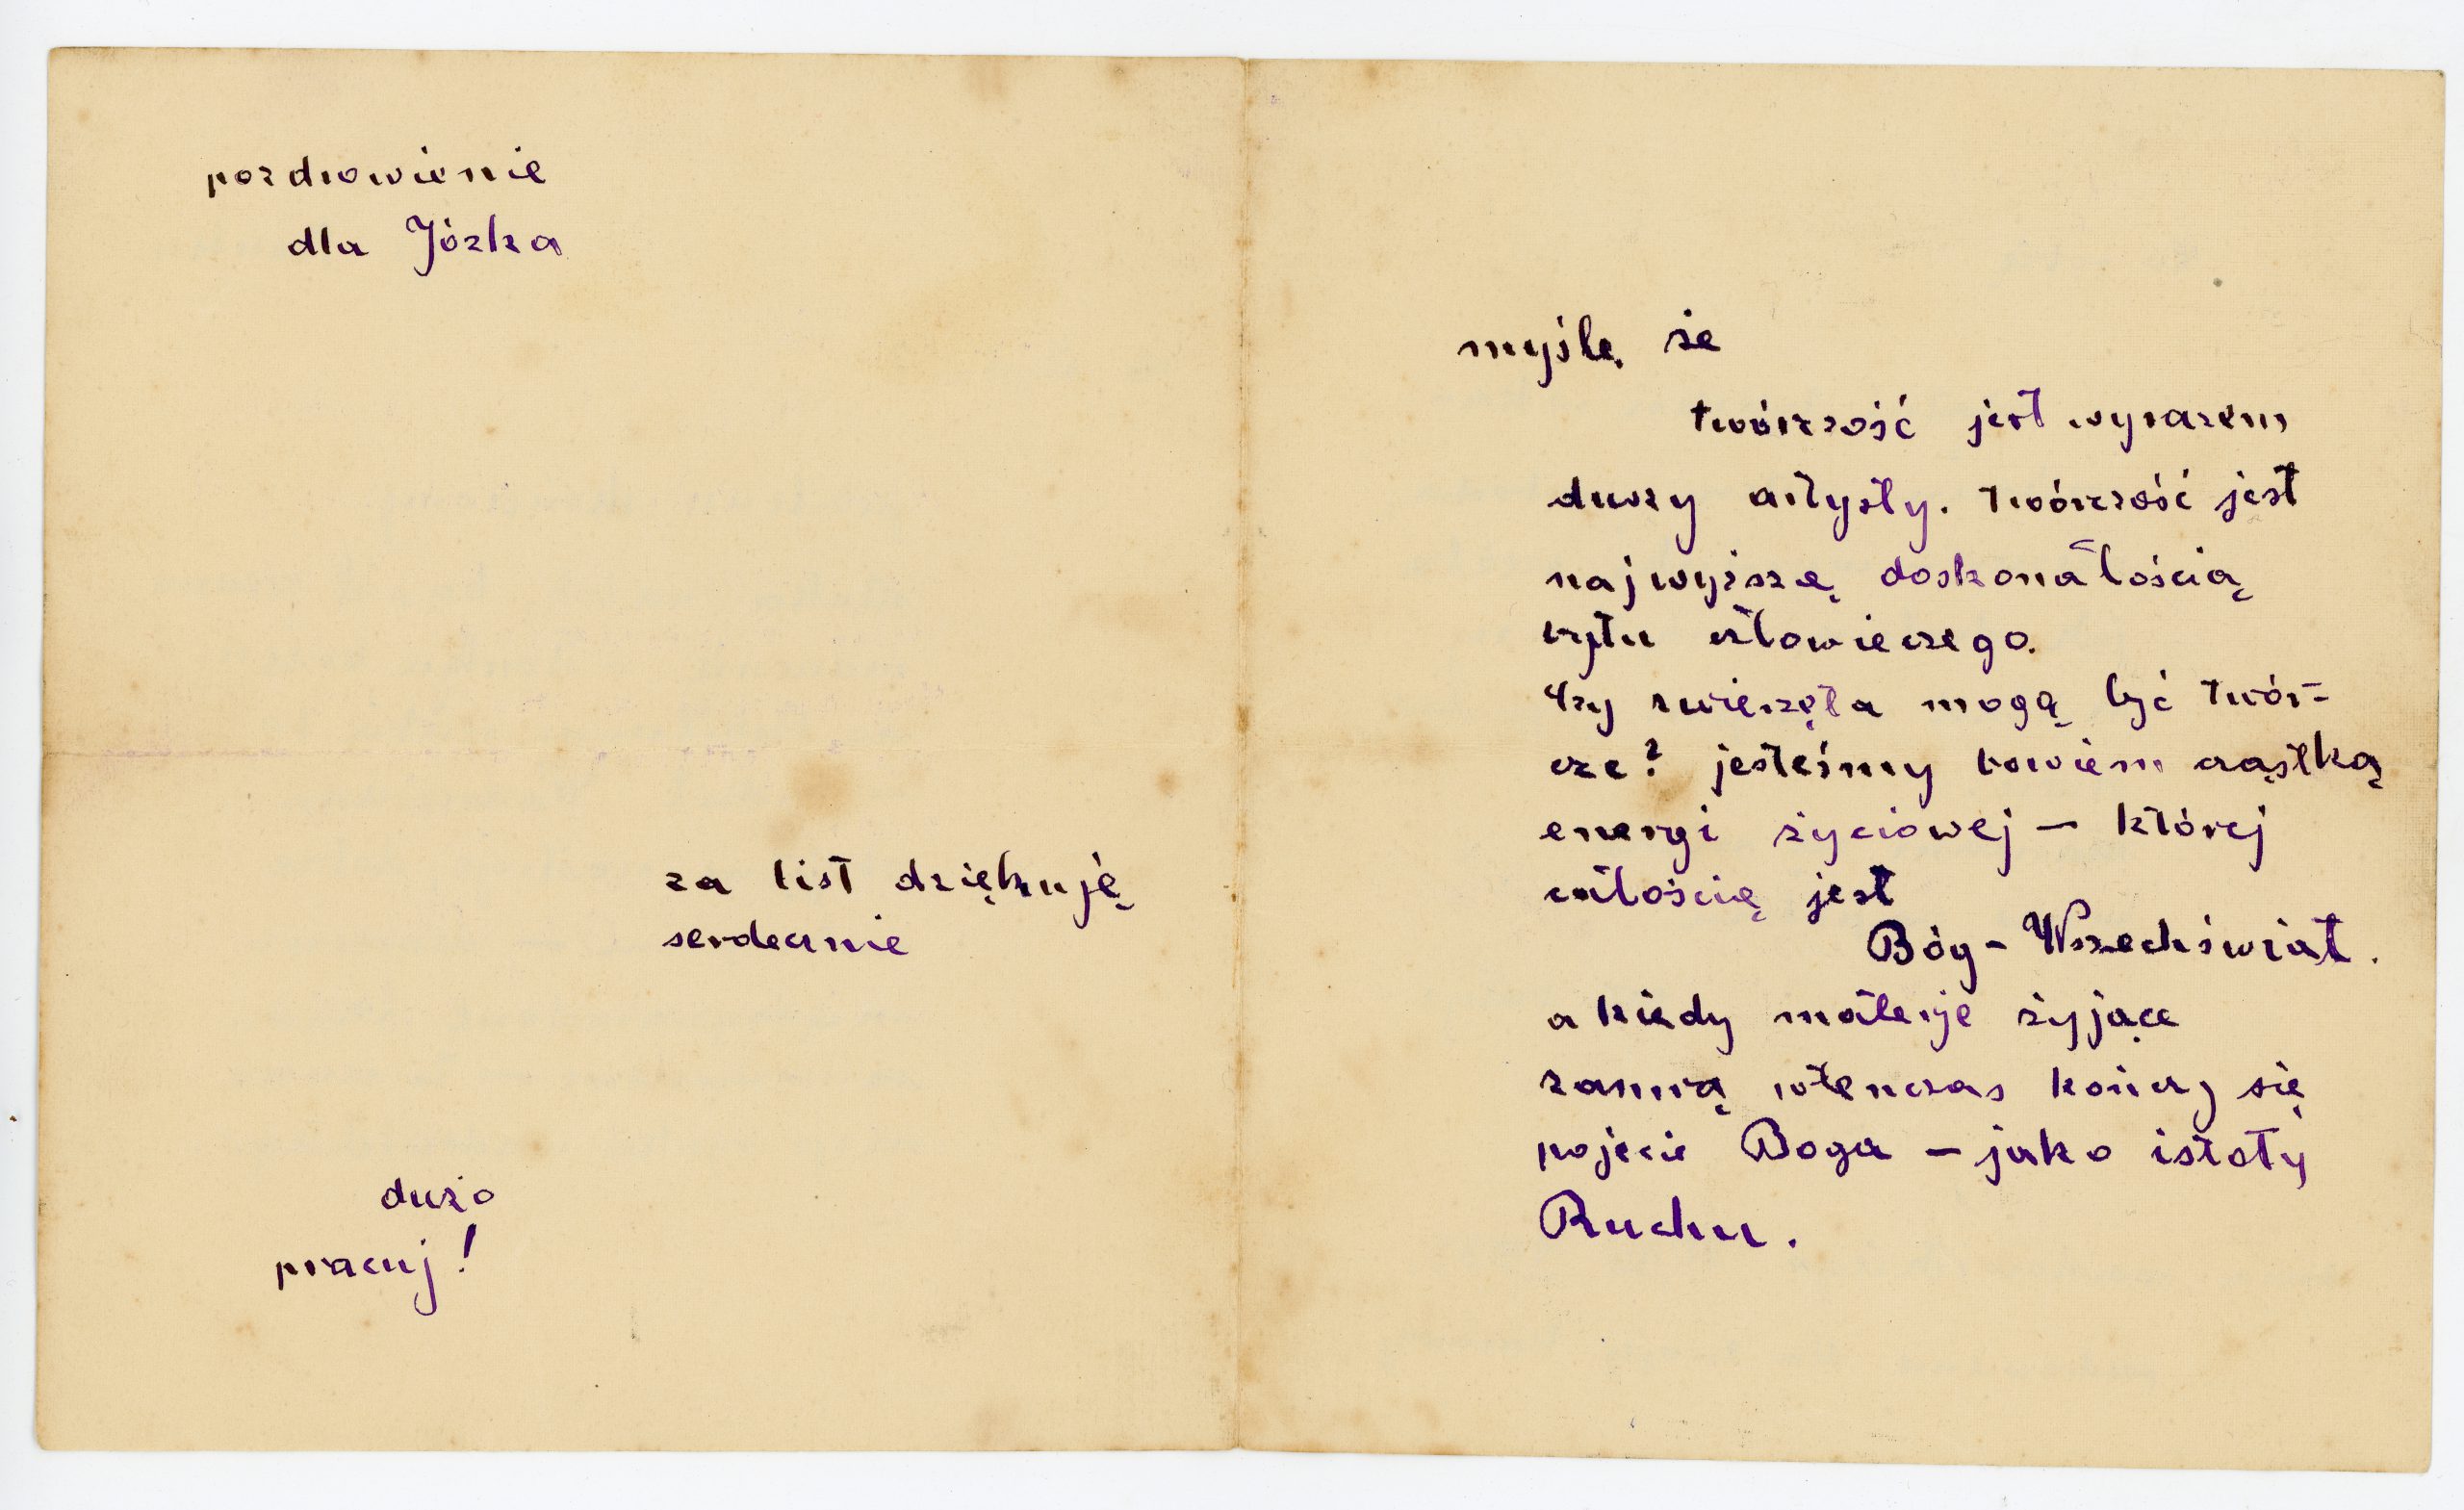 pozdrowienie
dla Józka
za list dziękuję
serdecznie
dużo
pracuj!
myślę że
twórczość jest wyrazem
duszy artysty. twórczość jest
najwyższą doskonałością
bytu człowieczego.
Czy zwierzęta mogą być twór-
cze? jesteśmy bowiem cząstką
energi życiowej — której
całością jest
Bóg – Wszechświat.
a kiedy materje żyjące
zamrą wtenczas kończy się
pojęcie Boga – jako istoty
Ruchu.